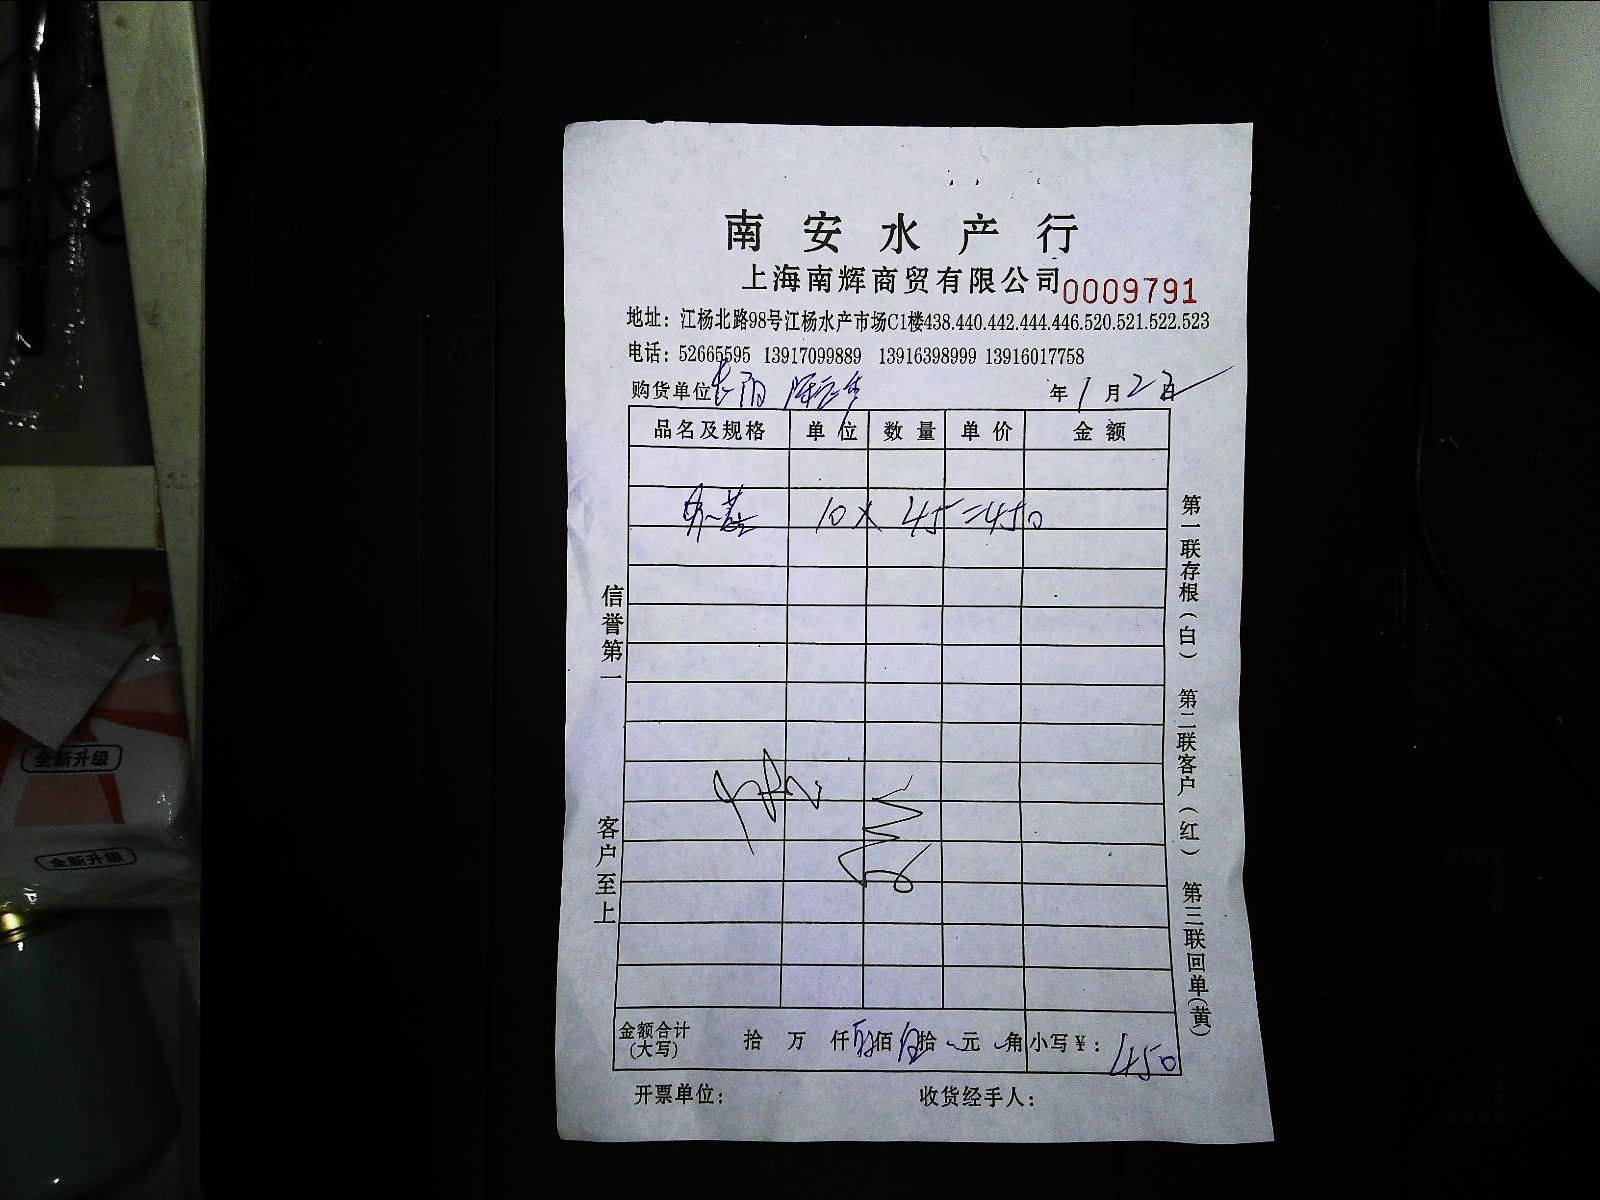 南安水产行
上海南辉商贸有限公司 0009791
地址：江杨北路98号江杨水产市场C1楼438.440.442.444.446.520.521.522.523
电话：52665595 13917099889 13916398999 13916017758
购货单位 年1月22日
品名及规格 单位 数量 单价 金额
10× 45=450
信誉第一
客户至上
第一联存根（白） 第二联客户（红） 第三联回单(黄)
金额合计(大写) 拾 万 仟肆佰伍拾 元 角 小写￥：450
开票单位： 收货经手人：
全新升级
全新升级